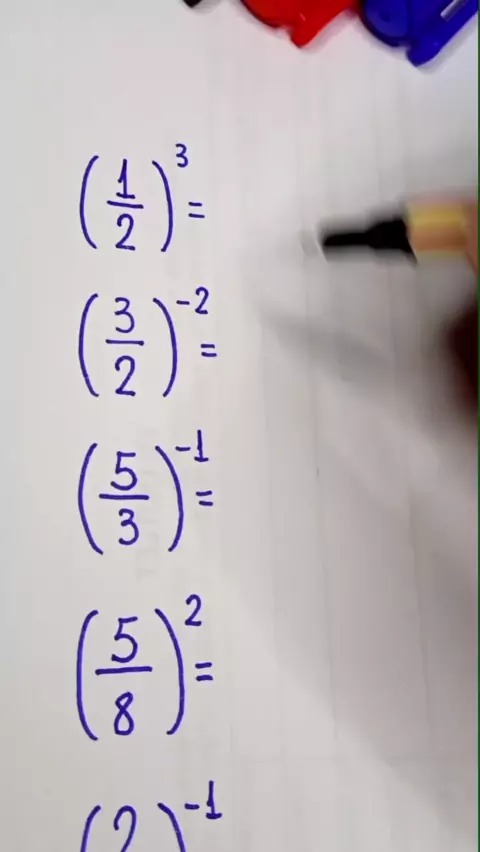 (1/2)^3 =
(3/2)^-2 =
(5/3)^-1 =
(5/8)^2 =
(2 )^-1